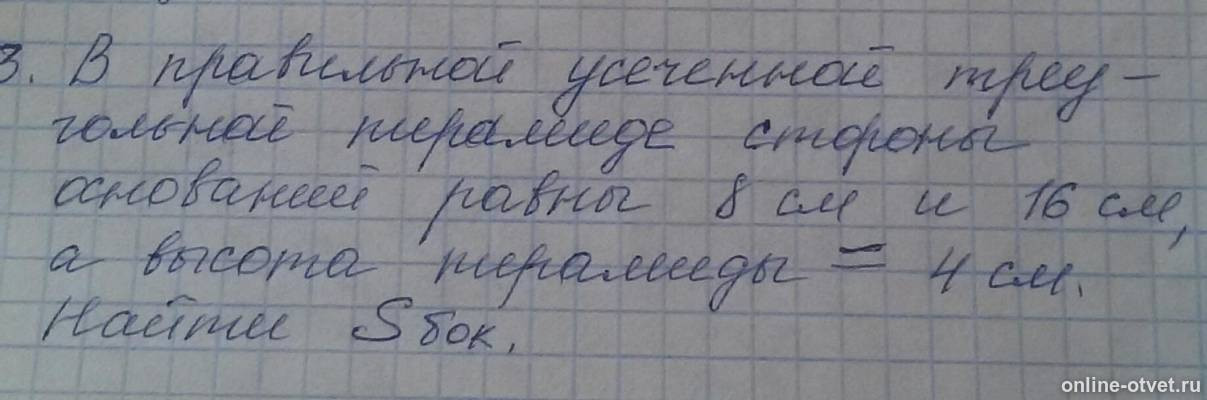 3. В правильной усеченной треу-
гольной пирамиде стороны
оснований равны 8 см и 16 см,
а высота пирамиды = 4 см.
Найти Sбок.
online-otvet.ru